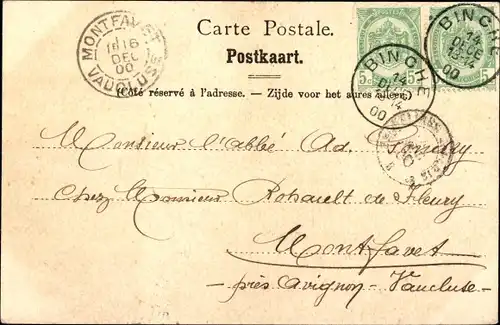 Carte Postale.
Postkaart.
(Côté réservé à l'adresse. — Zijde voor het adres alleen.)
MONTFAVET
16
DEC
00
VAUCLUSE
5c
5
BINCHE
14
DEC
00
BINCHE
14
DEC
00
Monsieur l'abbé Ad.
Chez Monsieur Rohault de Fleury
Montfavet
— près Avignon — Vaucluse —